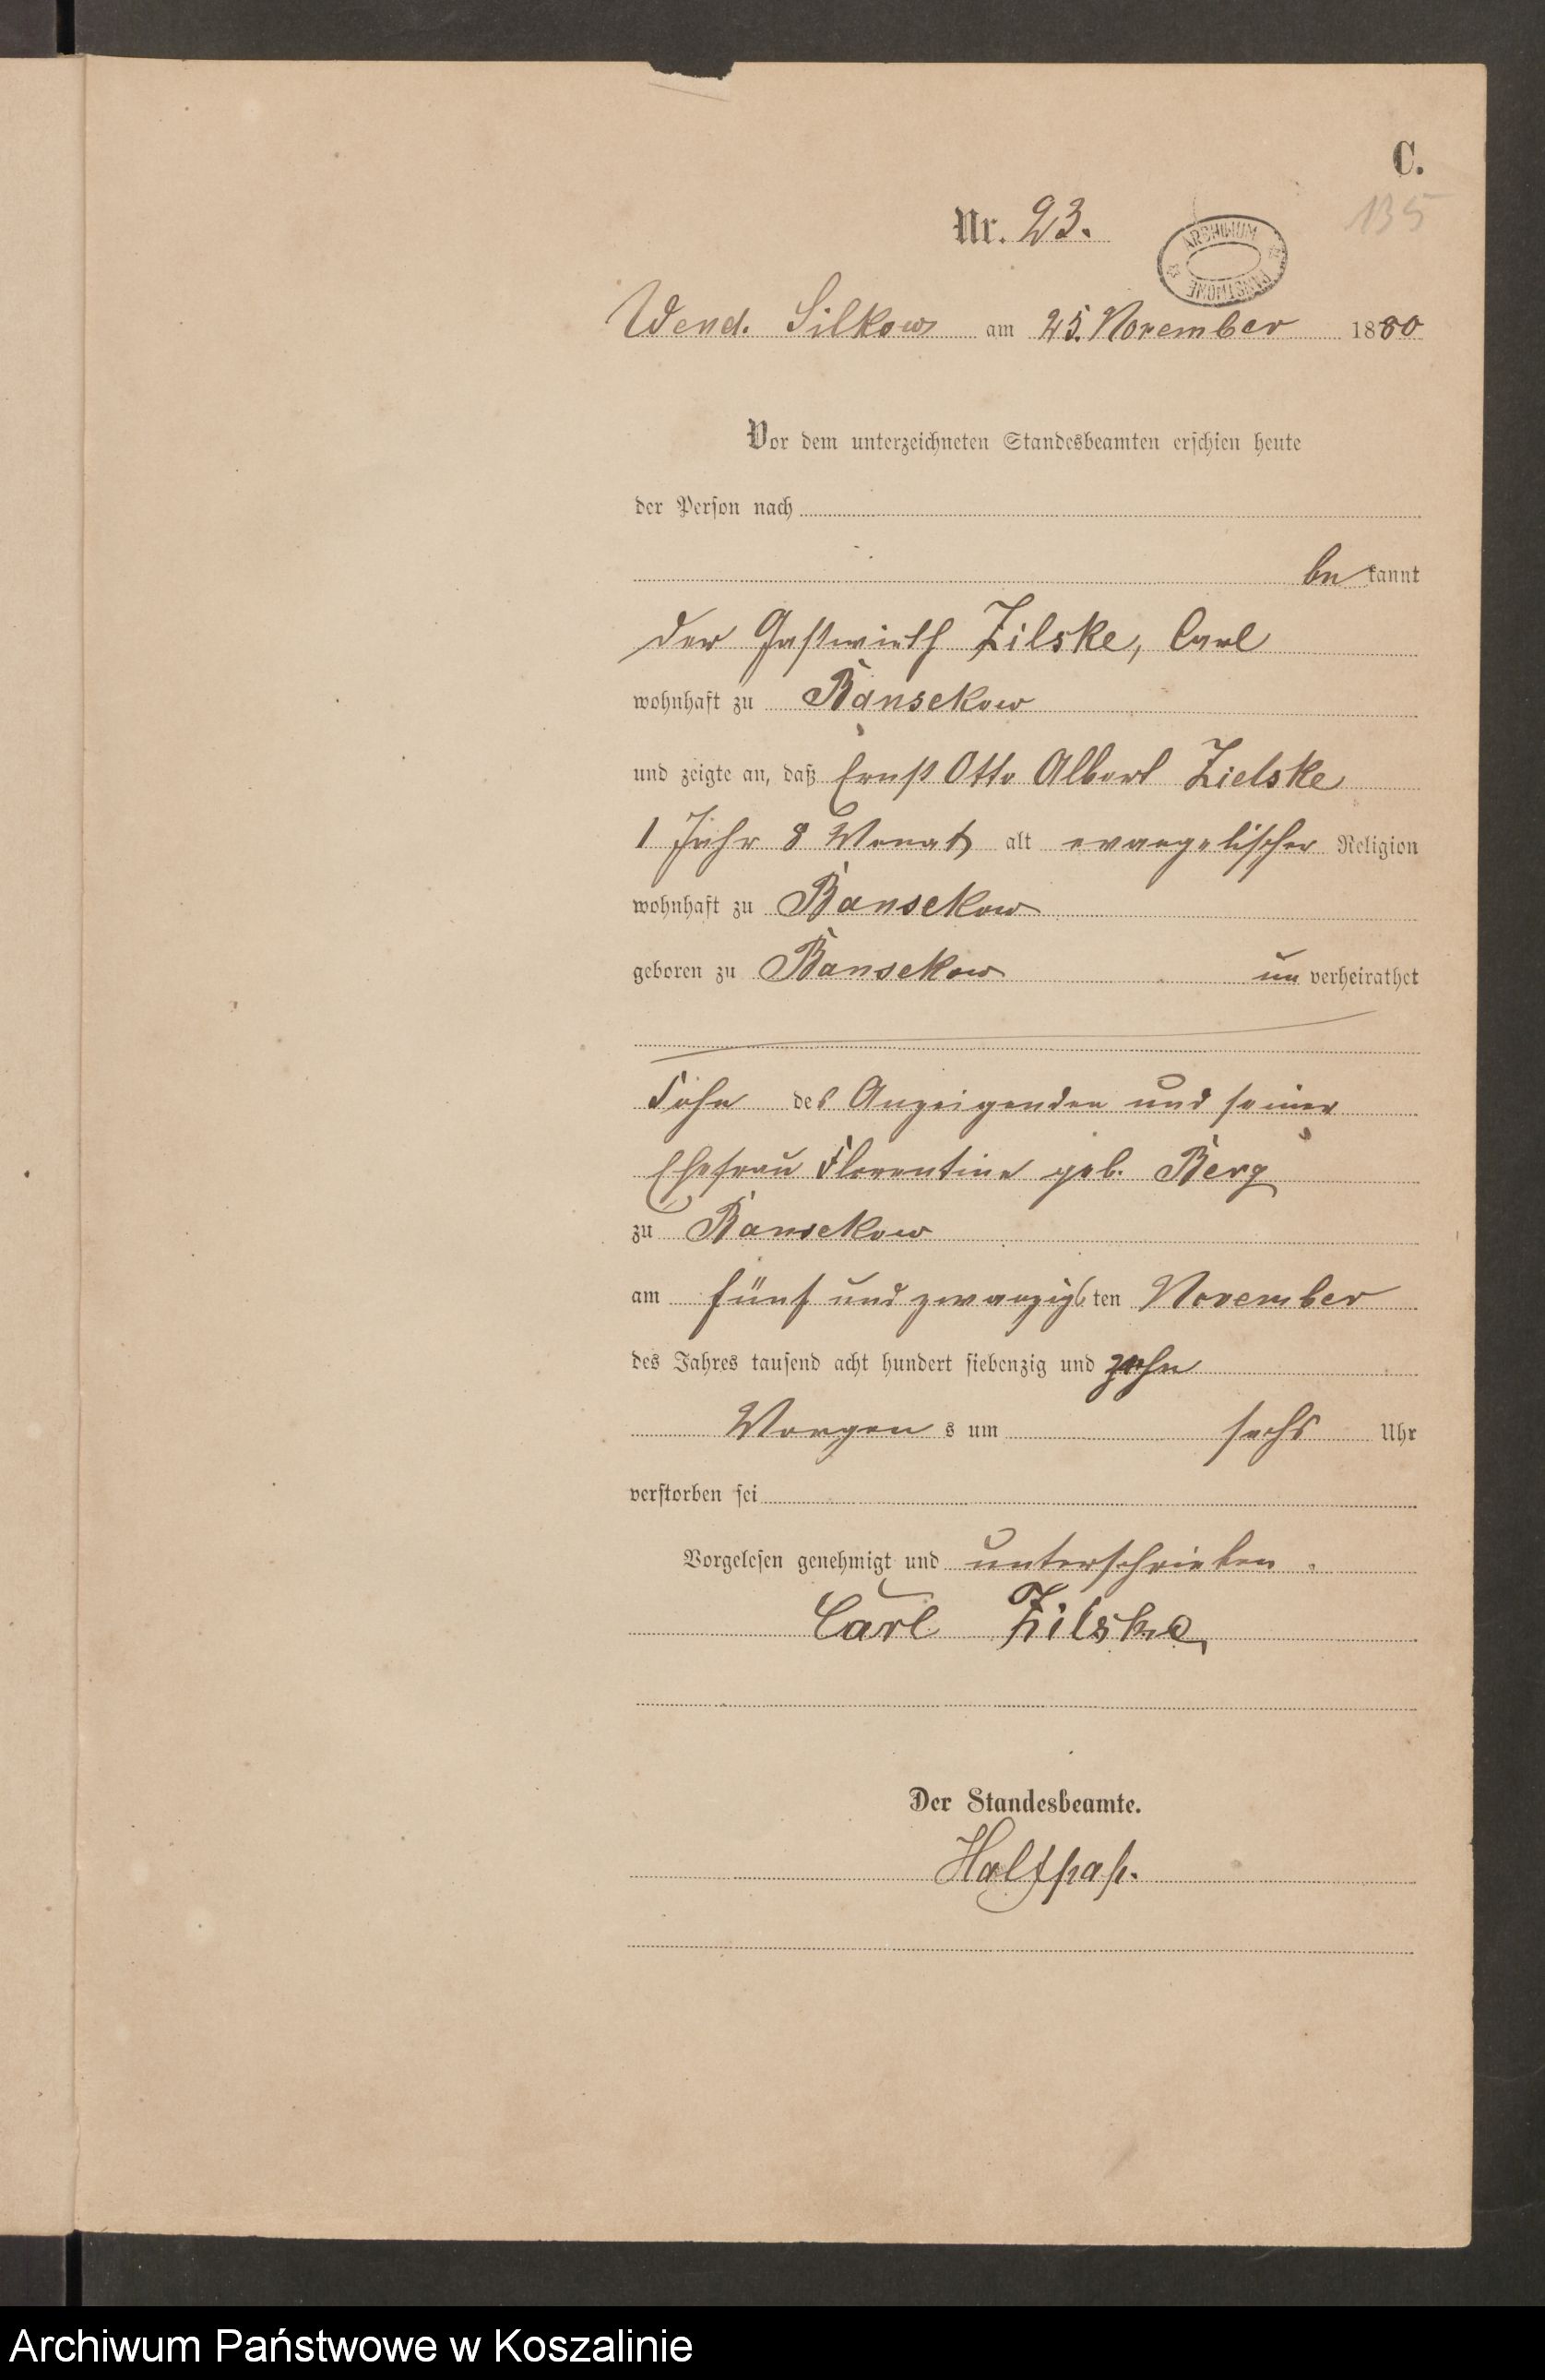 C.
135
Nr. 23.
ARCHIWUM PAŃSTWOWE
Wend. Silkow am 25. November 1880
Vor dem unterzeichneten Standesbeamten erschien heute
der Person nach
bekannt
der Gastwirth Zilske, Carl
wohnhaft zu Bansekow
und zeigte an, daß Ernst Otto Albert Zielske
1 Jahr 8 Monat alt evangelischer Religion
wohnhaft zu Bansekow
geboren zu Bansekow unverheirathet
Sohn des Anzeigenden und seiner
Ehefrau Florentine geb. Berg
zu Bansekow
am fünf und zwanzigsten November
des Jahres tausend acht hundert siebenzig und zehn
Morgens um sechs Uhr
verstorben sei
Vorgelesen genehmigt und unterschrieben.
Carl Zilske
Der Standesbeamte.
Archiwum Państwowe w Koszalinie